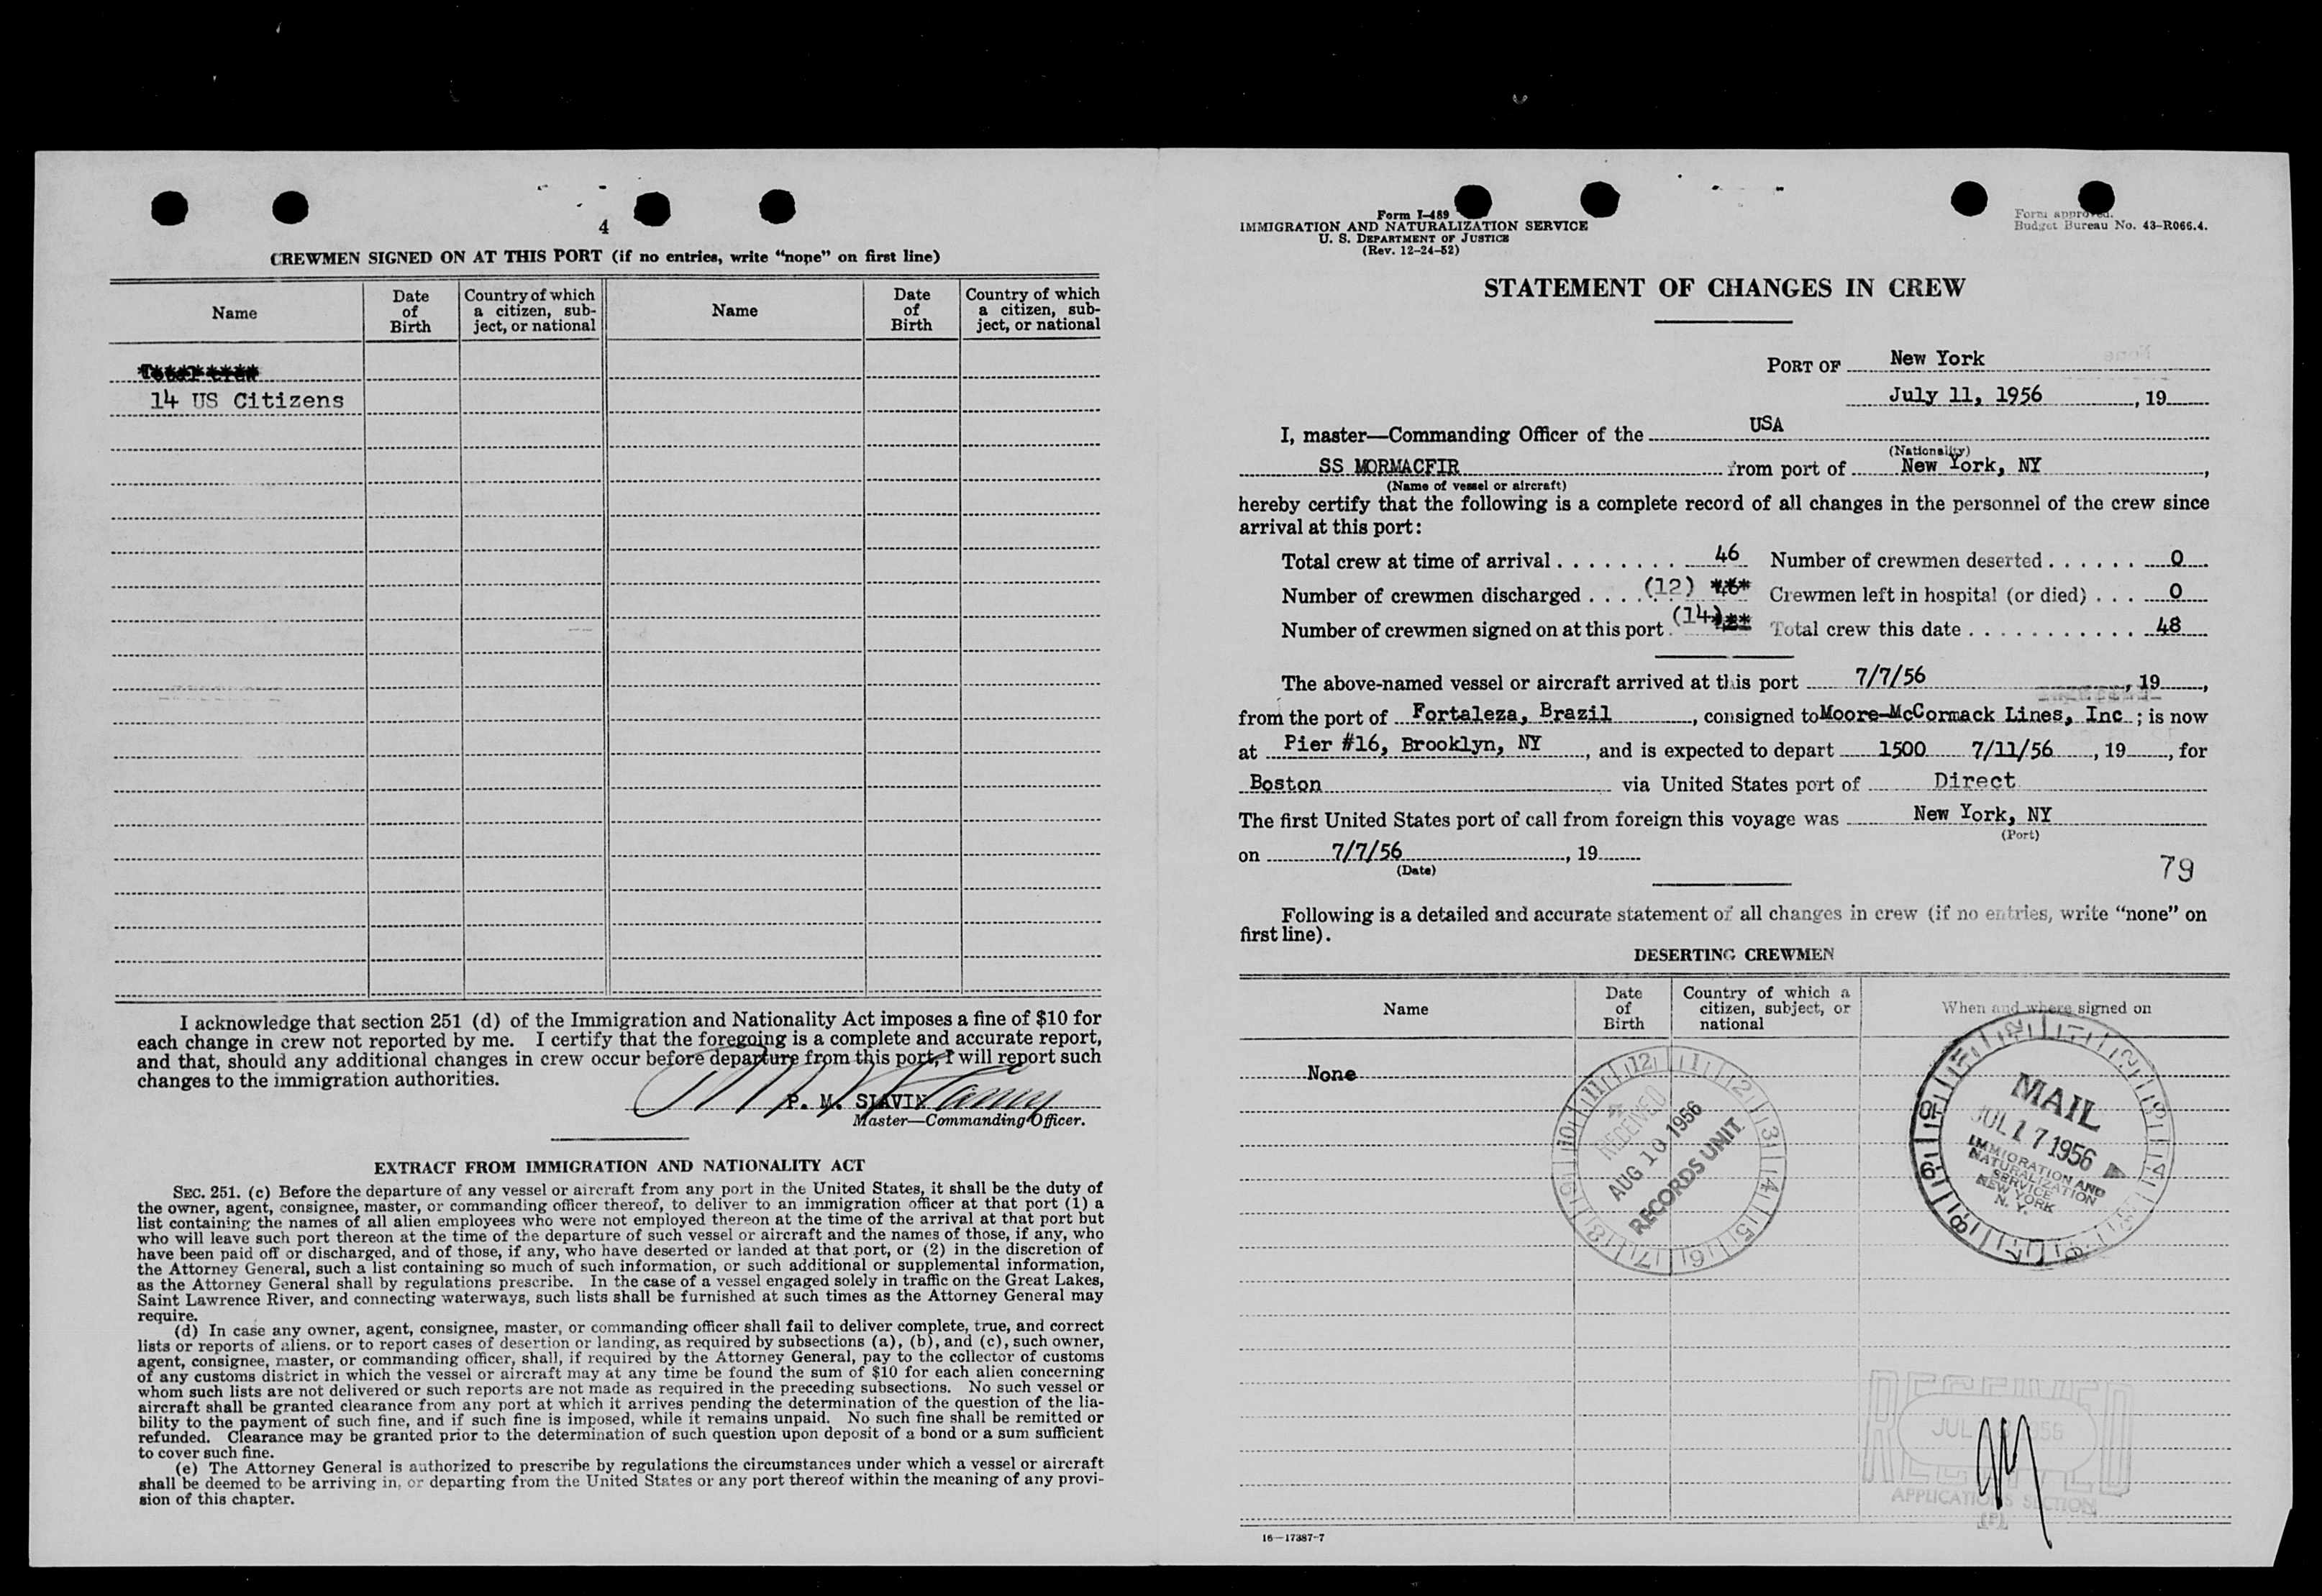 4
CREWMEN SIGNED ON AT THIS PORT (if no entries, write "none" on first line)
Name
Date of Birth
Country of which a citizen, subject, or national
Name
Date of Birth
Country of which a citizen, subject, or national
14 US Citizens
I acknowledge that section 251 (d) of the Immigration and Nationality Act imposes a fine of $10 for
each change in crew not reported by me. I certify that the foregoing is a complete and accurate report,
and that, should any additional changes in crew occur before departure from this port, I will report such
changes to the immigration authorities.
P. M. SLAVIN
Master—Commanding Officer.
EXTRACT FROM IMMIGRATION AND NATIONALITY ACT
SEC. 251. (c) Before the departure of any vessel or aircraft from any port in the United States, it shall be the duty of
the owner, agent, consignee, master, or commanding officer thereof, to deliver to an immigration officer at that port (1) a
list containing the names of all alien employees who were not employed thereon at the time of the arrival at that port but
who will leave such port thereon at the time of the departure of such vessel or aircraft and the names of those, if any, who
have been paid off or discharged, and of those, if any, who have deserted or landed at that port, or (2) in the discretion of
the Attorney General, such a list containing so much of such information, or such additional or supplemental information,
as the Attorney General shall by regulations prescribe. In the case of a vessel engaged solely in traffic on the Great Lakes,
Saint Lawrence River, and connecting waterways, such lists shall be furnished at such times as the Attorney General may
require.
(d) In case any owner, agent, consignee, master, or commanding officer shall fail to deliver complete, true, and correct
lists or reports of aliens. or to report cases of desertion or landing, as required by subsections (a), (b), and (c), such owner,
agent, consignee, master, or commanding officer, shall, if required by the Attorney General, pay to the collector of customs
of any customs district in which the vessel or aircraft may at any time be found the sum of $10 for each alien concerning
whom such lists are not delivered or such reports are not made as required in the preceding subsections. No such vessel or
aircraft shall be granted clearance from any port at which it arrives pending the determination of the question of the lia-
bility to the payment of such fine, and if such fine is imposed, while it remains unpaid. No such fine shall be remitted or
refunded. Clearance may be granted prior to the determination of such question upon deposit of a bond or a sum sufficient
to cover such fine.
(e) The Attorney General is authorized to prescribe by regulations the circumstances under which a vessel or aircraft
shall be deemed to be arriving in, or departing from the United States or any port thereof within the meaning of any provi-
sion of this chapter.
Form I-489
IMMIGRATION AND NATURALIZATION SERVICE
U. S. DEPARTMENT OF JUSTICE
(Rev. 12-24-52)
Form approved.
Budget Bureau No. 43-R066.4.
STATEMENT OF CHANGES IN CREW
PORT OF New York
July 11, 1956, 19
I, master—Commanding Officer of the USA
(Nationality)
SS MORMACFIR from port of New York, NY,
(Name of vessel or aircraft)
hereby certify that the following is a complete record of all changes in the personnel of the crew since
arrival at this port:
Total crew at time of arrival 46 Number of crewmen deserted 0
Number of crewmen discharged (12) Crewmen left in hospital (or died) 0
Number of crewmen signed on at this port (14) Total crew this date 48
The above-named vessel or aircraft arrived at this port 7/7/56, 19,
from the port of Fortaleza, Brazil, consigned to Moore-McCormack Lines, Inc; is now
at Pier #16, Brooklyn, NY, and is expected to depart 1500 7/11/56, 19, for
Boston via United States port of Direct
The first United States port of call from foreign this voyage was New York, NY
(Port)
on 7/7/56, 19
(Date)
79
Following is a detailed and accurate statement of all changes in crew (if no entries, write "none" on
first line).
DESERTING CREWMEN
Name
Date of Birth
Country of which a citizen, subject, or national
When and where signed on
None
RECEIVED
AUG 10 1956
RECORDS UNIT
MAIL
JUL 17 1956
IMMIGRATION AND
NATURALIZATION
SERVICE
NEW YORK
N. Y.
RECEIVED
JUL 1956
APPLICATIONS SECTION
16—17387-7